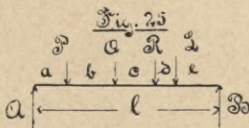 Fig. 25
P Q R L
a b c d e
A l B